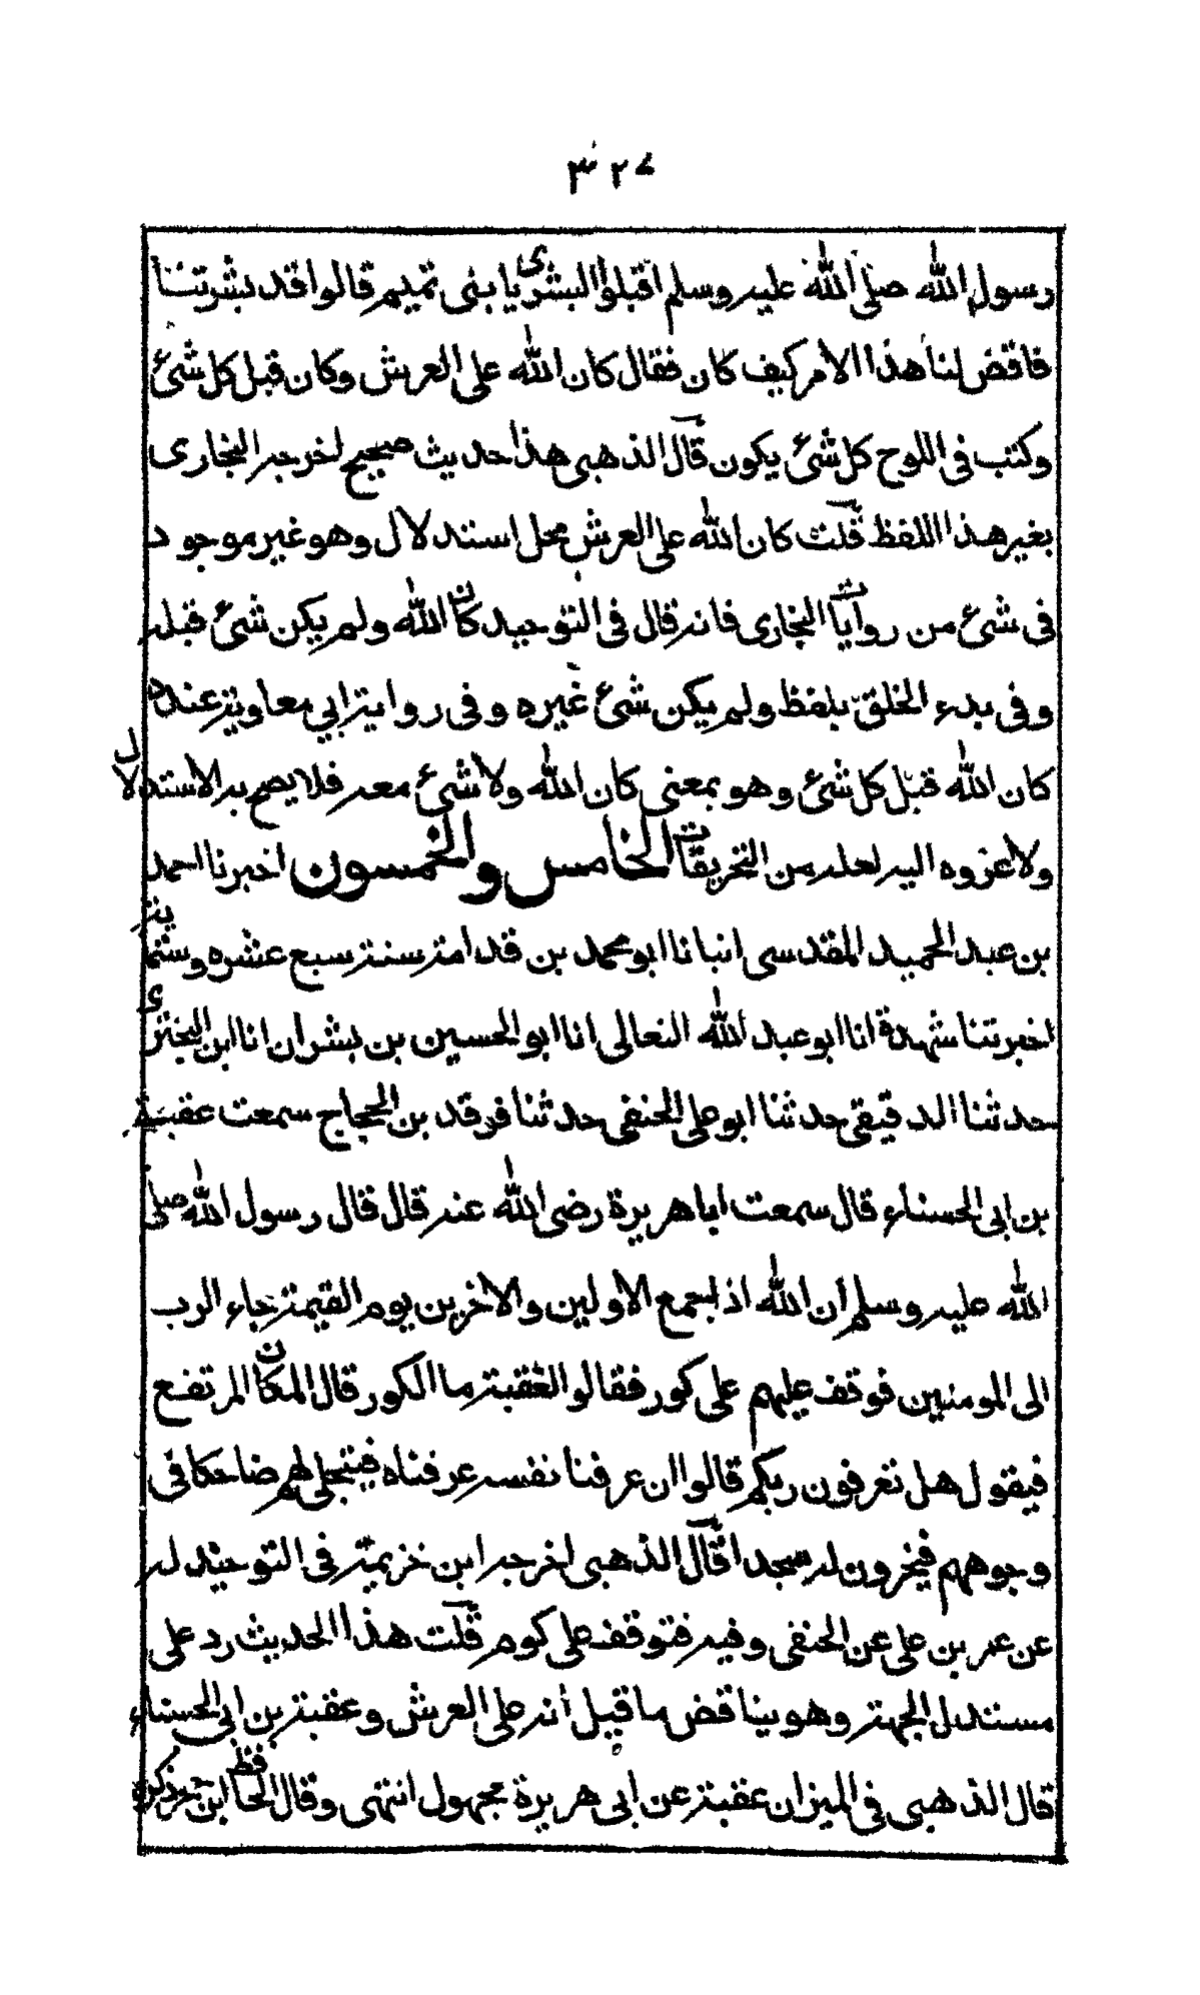 ٣٢٧
رسول الله صلى الله عليه وسلم اقبلوا البشرى يا بنى تميم قالوا قد بشرتنا
فاقض لنا هذا الامر كيف كان فقال كان الله على العرش وكان قبل كل شئ
وكتب فى اللوح كل شئ يكون قال الذهبى هذا حديث صحيح اخرجه البخارى
بغير هذا اللفظ قلت كان الله على العرش محل استدلال وهو غير موجود
فى شئ من روايات البخارى فانه قال فى التوحيد كان الله ولم يكن شئ قبله
وفى بدء الخلق بلفظ ولم يكن شئ غيره وفى رواية ابي معاوية عنده
كان الله قبل كل شئ وهو بمعنى كان الله ولا شئ معه فلا يصح به الاستدلال
ولا عزوه اليه لعله من التحريفات الخامس والخمسون اخبرنا احمد
بن عبد الحميد المقدسى انبانا ابو محمد بن قدامة سنة سبع عشره وستمائة
اخبرتنا شهدة انا ابو عبد الله النعالى انا ابو الحسين بن بشران انا ابن البخترى
حدثنا الدقيقى حدثنا ابو على الحنفى حدثنا فرقد بن الحجاج سمعت عقبة
بن ابى الحسناء قال سمعت ابا هريرة رضى الله عنه قال قال رسول الله صلى
الله عليه وسلم ان الله اذا جمع الاولين والاخرين يوم القيمة جاء الرب
الى المومنين فوقف عليهم على كور فقالوا لعقبة ما الكور قال المكان المرتفع
فيقول هل تعرفون ربكم قالوا ان عرفنا نفسه عرفناه فيتجلى لهم ضاحكا فى
وجوههم فيخرون له سجدا قال الذهبى اخرجه ابن خزيمة فى التوحيد له
عن عمر بن على عن الحنفى وفيه فتوقف على كوم قلت هذا الحديث رد على
مستدل الجهة وهو يناقض ما قبل انه على العرش وعقبة بن ابى الحسناء
قال الذهبى فى الميزان عقبة عن ابى هريرة مجهول انتهى وقال الحافظ ابن حجر ذكره